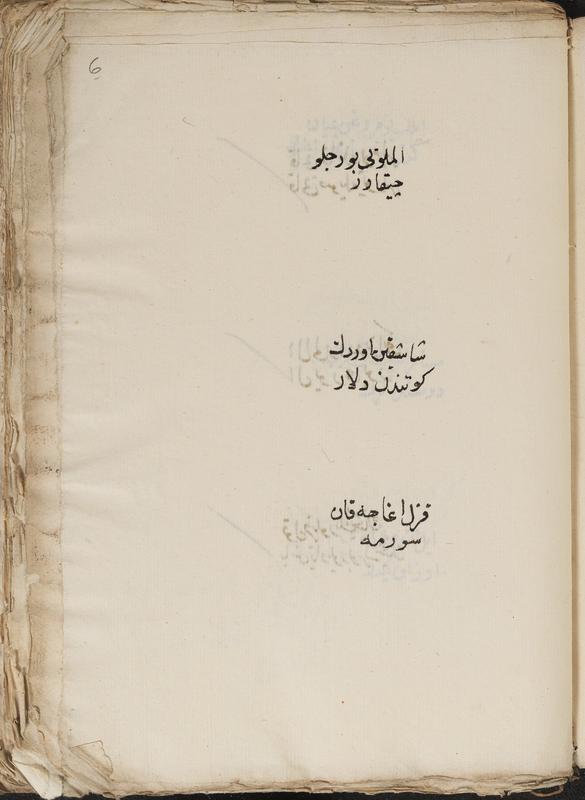 6
الملوتى بورجلو
چيقاور
شاشقين اوردك
كوتندن دلار
قزل اغاجه قان
سورمه